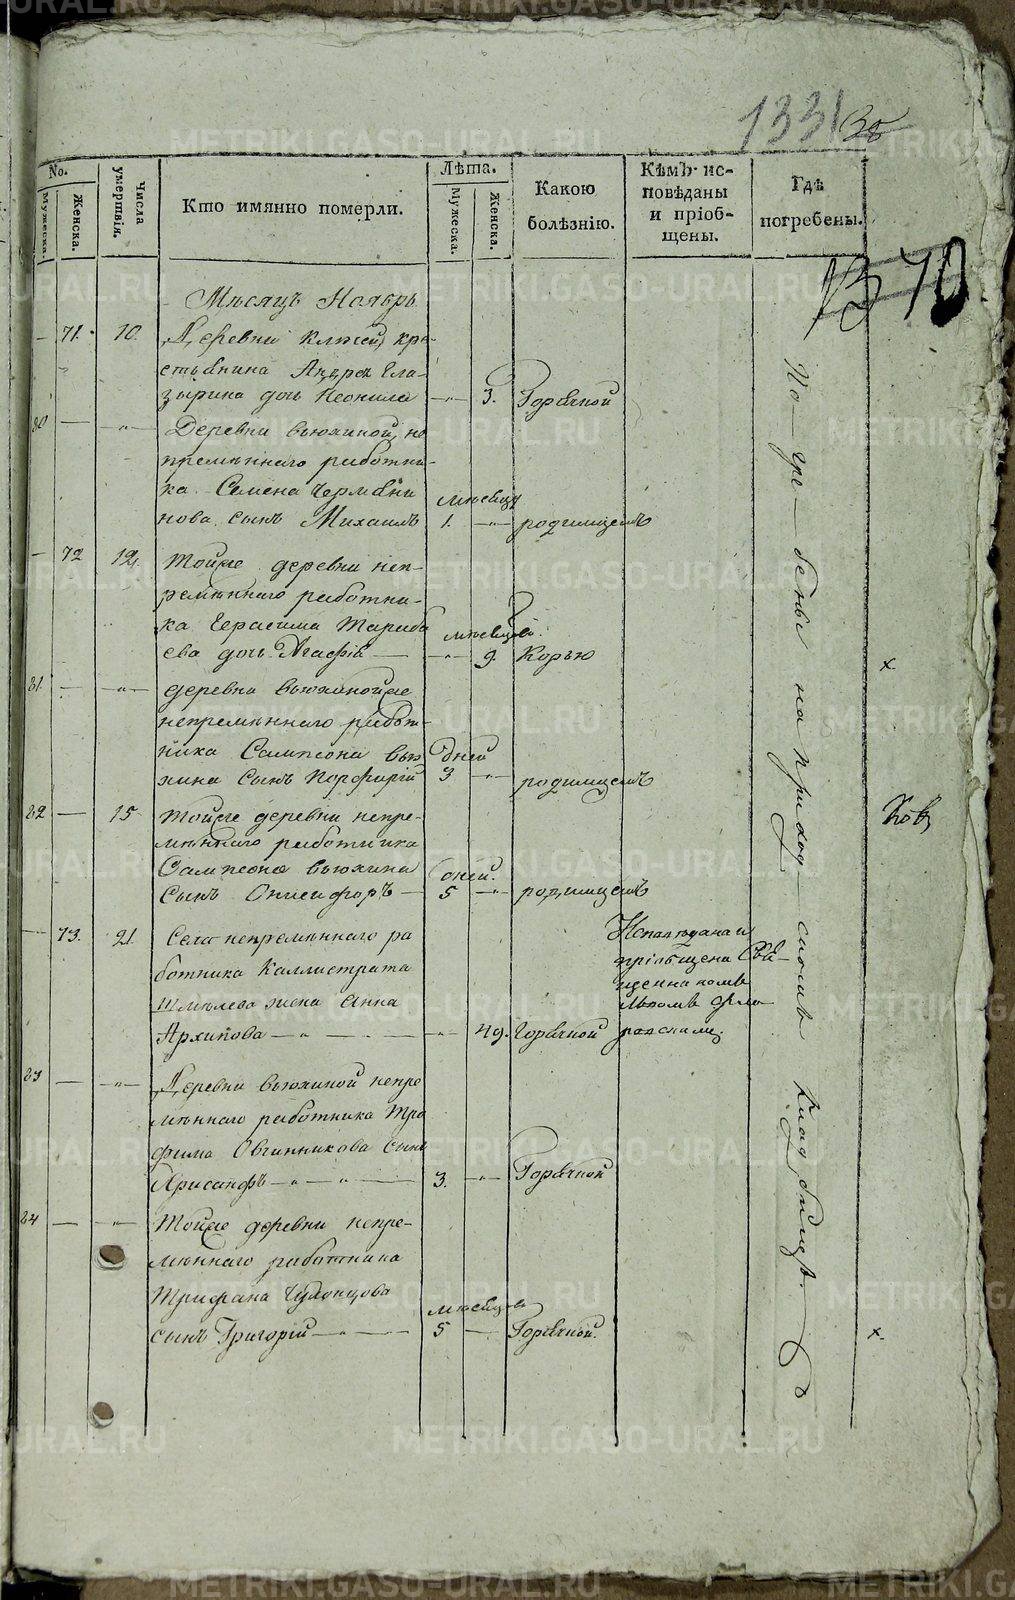 1331 38
No.
Мужеска.
Женска.
Числа умертвія.
Кто имянно померли.
Лѣта.
Мужеска.
Женска.
Какою болѣзнію.
Кѣмъ исповѣданы и пріобщены.
Гдѣ погребены.
1370
Мѣсяцъ Ноябрь
71. 10. Деревни Ключей кре-
стьянина Андрея Гла-
зырина дочь Неонила 3. Горячкой
80 Деревни Вьюхиной не
премѣннаго работни-
ка Семена Чермяни
нова сынъ Михаилъ мѣсяцъ 1. родимцемъ
72 12. Той же деревни неп-
ремѣннаго работни-
ка Герасима
ева дочь Агафія мѣсяцовъ 9. Корью
х
81. деревни Вьюхиной же
непремѣннаго работ-
ника Сампсона Вью
хина сынъ Порфирій дней 3 родимцемъ
82 15 Той же деревни непре-
мѣннаго работника
Сампсона Вьюхина
сынъ Онисифоръ дней 5 родимцемъ
73. 21. Села непремѣннаго ра
ботника Каллистрата
Шмѣлева жена Анна
Архипова 49. Горячкой
Исповѣдана и
пріобщена Свя-
щенникомъ
83 Деревни Вьюхиной непре
мѣннаго работника Тро
фима Овчинникова сынъ
Хрисанфъ 3. Горячкой
84 Той же деревни непре-
мѣннаго работника
Трифана
сынъ Григорій мѣсяцовъ 5 Горячкой.
х.
Погребены на приходскомъ кладбищѣ.
METRIKI.GASO-URAL.RU